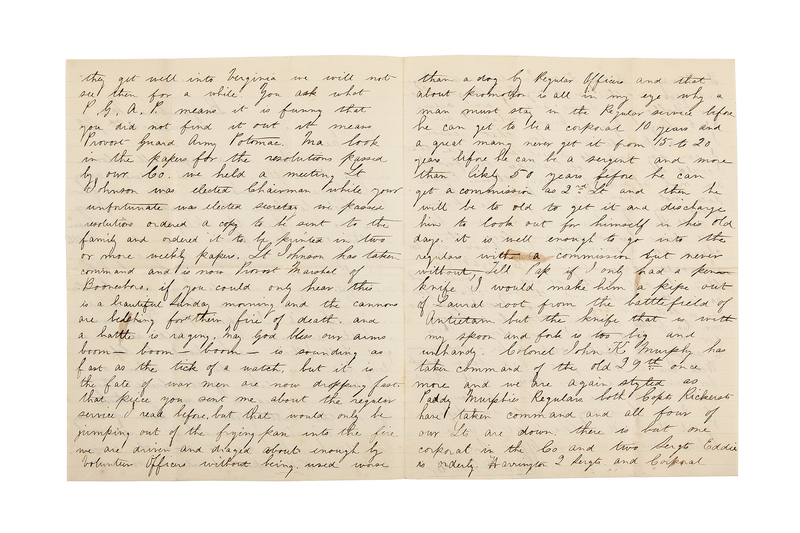 they get well into Verginia we will not
see them for a while You ask what
P. G. A. P. means it is funny that
you did not find it out it means
Provost Guard Army Potomac. Ma look
in the papers for the resolutions passed
by our Co. we held a meeting Lt
Johnson was elected Chairman while your
unfortunate was elected secretary we passed
resolutions ordered a copy to be sent to the
family and ordered it to be printed in two
or more weekly papers. Lt Johnson has taken
command and is now Provost Marshal of
Boonsboro. if you could only hear this
is a beautiful Sunday morning and the cannons
are belching forth their fire of death. and
a battle is raging. May God bless our arms
boom — boom — boom — is sounding as
fast as the tick of a watch, but it is
the fate of war men are now dropping fast.
that peice you sent me about the regular
service I read before, but that would only be
jumping out of the frying pan into the fire
we are driven and draged about enough by
Volunteer Officers without being used worse
than a dog by Regular Officers and that
about promotion is all in my eye why a
man must stay in the Regular service before
he can get to be a corporal 10 years and
a great many never get it from 15 to 20
years before he can be a sergent and more
than likly 50 years before he can
get a commission as 2nd Lt and then he
will be to old to get it and discharge
him to look out for himself in his old
days. it is well enough to go into the
regulars with a commission but never
without, Tell Pap if I only had a
knife I would make him a pipe out
of Laural root from the battlefield of
Antietam but the knife that is with
my spoon and fork is too big and
unhandy. Colonel John K Murphy has
taken command of the old 29th once
more and we are again styled as
Paddy Murphies Regulars both Capts Rickerts
have taken command and all four of
our Lts are down. there is but one
corporal in the Co and two Sergts Eddie
is orderly Harrington 2 Sergt. and Corporal